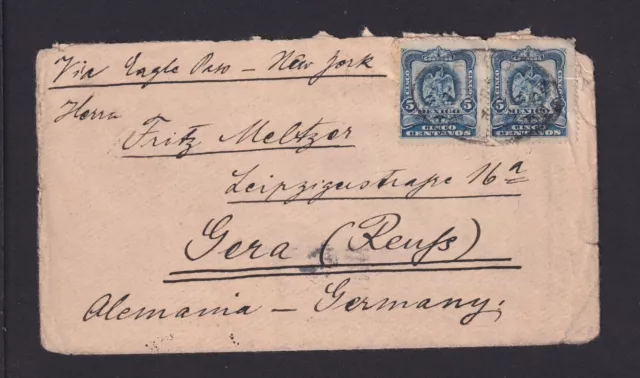 Via Eagle Pass – New York
Herrn
Fritz Meltzer
Leipzigerstraße 16a
Gera (Reuß)
Alemania – Germany.
CINCO 5 MEXICO 5 CINCO CENTAVOS
CINCO 5 MEXICO 5 CINCO CENTAVOS